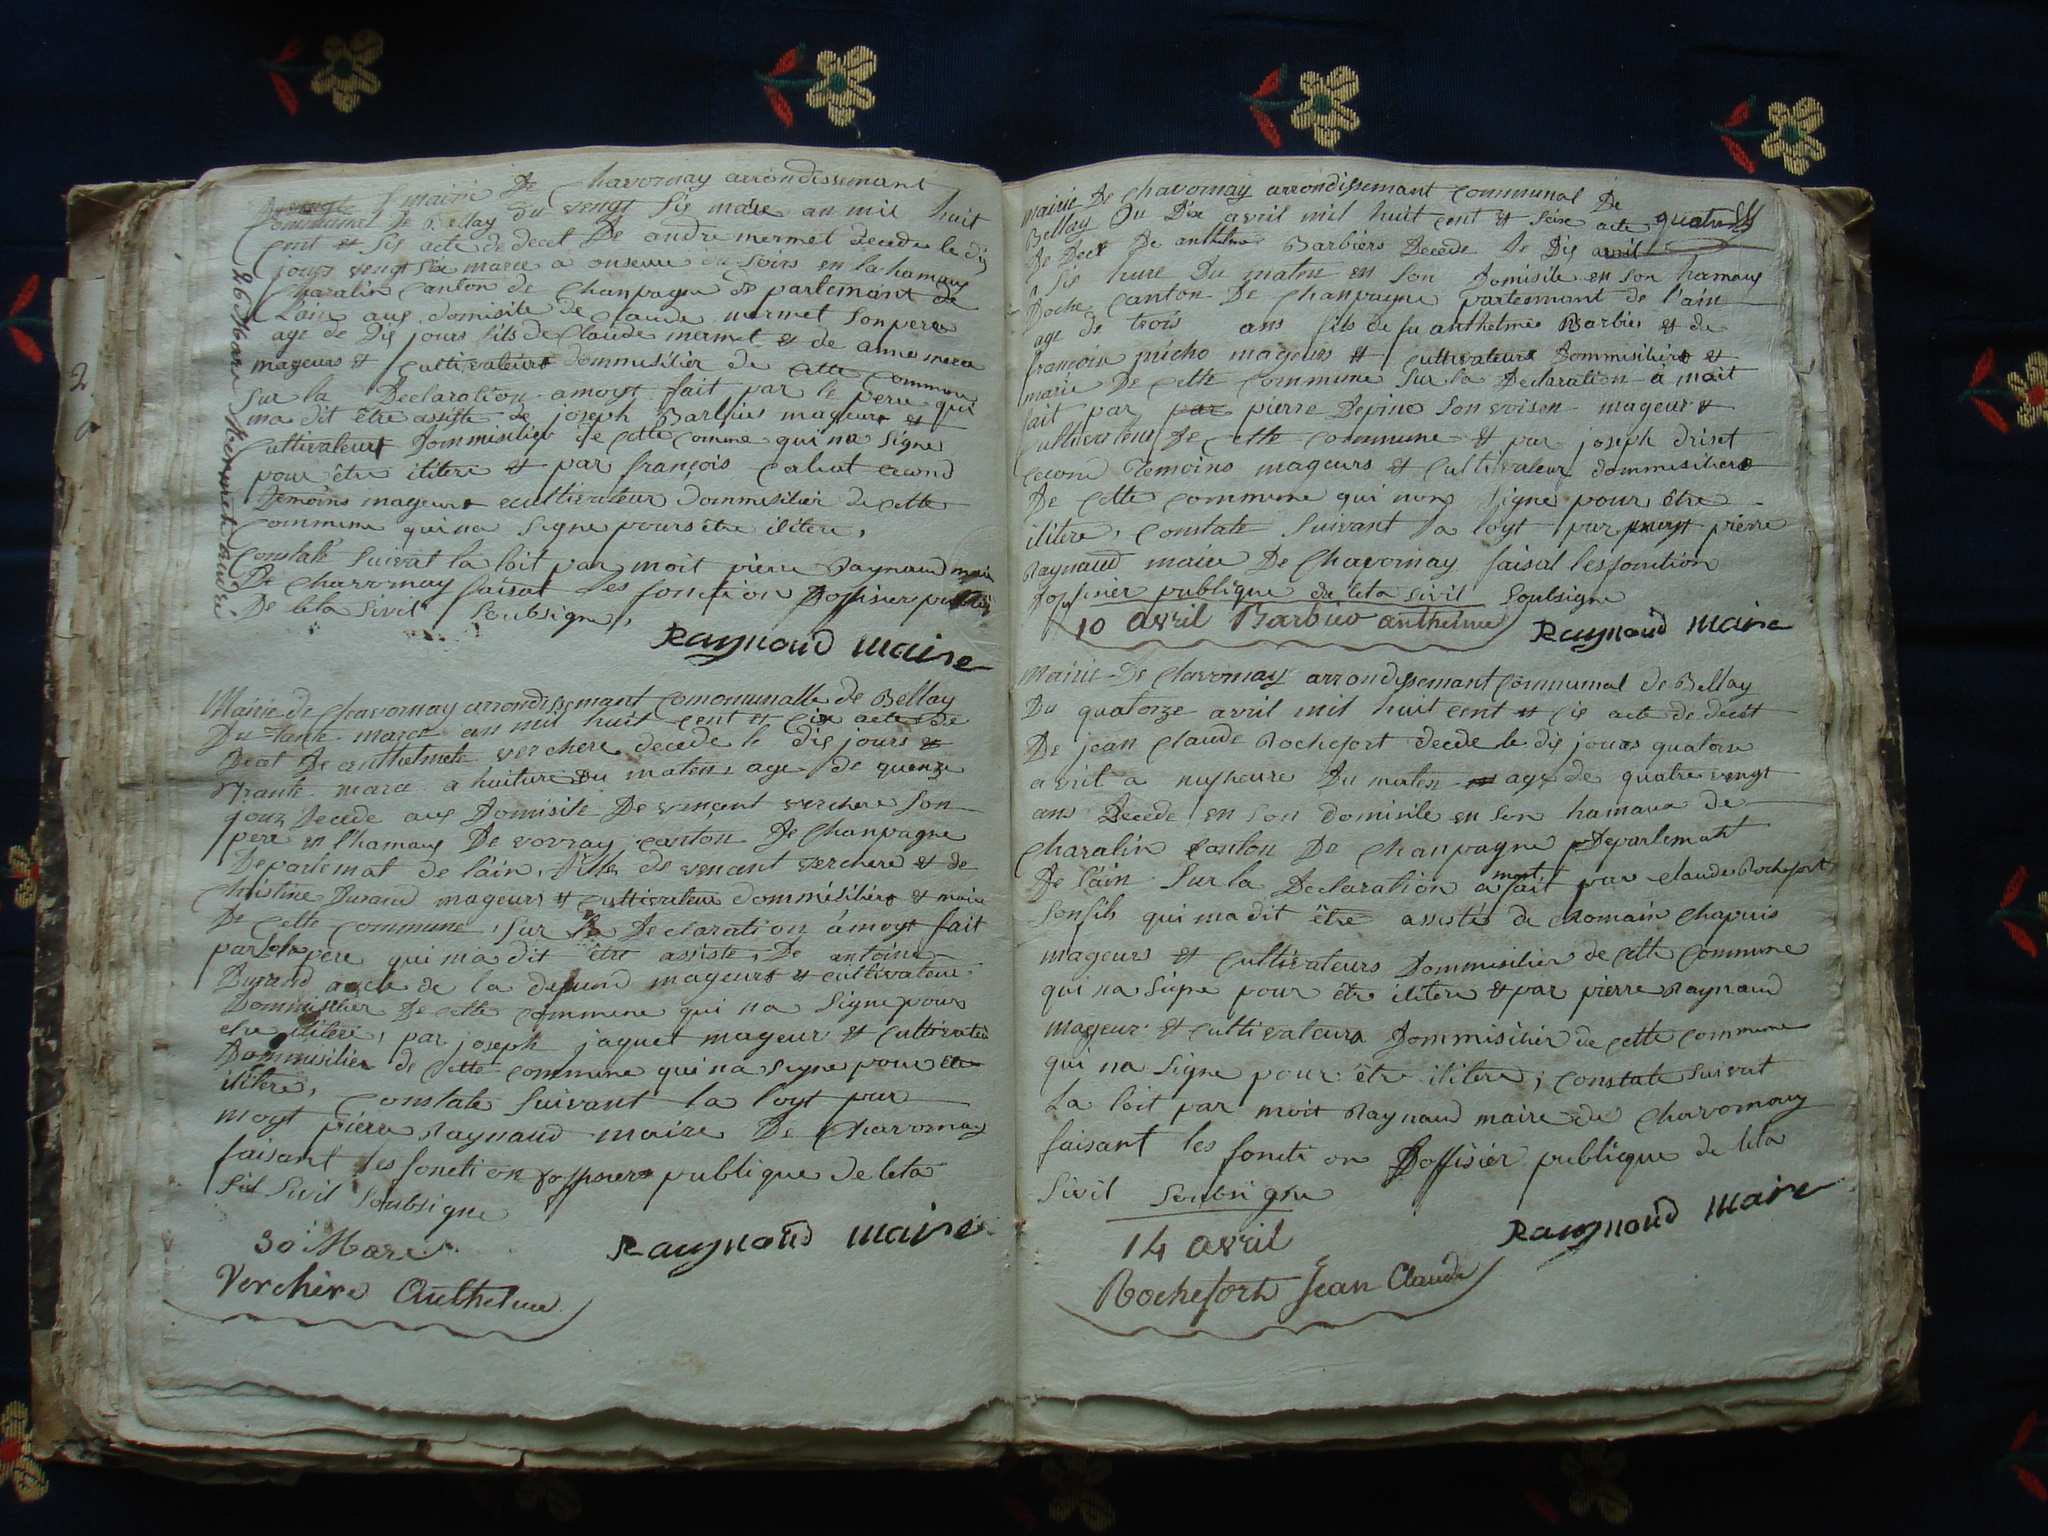 mairie De Chavornay arrondissemant
Communal De Bellay du vengt sis mars an mil huit
cent et sis acte de decet De andre mermet decede le dis
jours vengt sis marce a onseure du soirs en la hamaux
Charalin Canton de Chanpagne de partemant de
L'ain aux domisile de Claude mermet son pere
age de Dis jours fils de Claude mermet et de anne
mageurs et Cultivateurs dommisilier de cette Commune
Sur la Declaration a moyt fait par le pere qui
ma dit être assiste de joseph Barbier mageurs et
Cultivateurs Dommisilier de Cette Comune qui na Signe
pour être ilitere et par françois Cond
Temoins mageurs ecultivateur Dommisilier de cette
Commune qui na Signe pours être ilitere,
Constate Suivat la loit par moit pierre Raynaud maire
De Charvornay faisat les fonction Doffisier publique
De leta Sivil Soubsigne,
Raynaud Maire
26 Mars Mermet andré
Mairie de Chavornay arrondissemant Comomunalle de Bellay
Du trante marce an mil huit Cent et Cix acte De
Decet De anthelmete verchere decede le dis jours et
Trante marce a huiture du maten, age de quenze
jour Decede aux Domisile De venant verchere Son
pere en l'hamaux De vovray canton De Chanpagne
Departemat de l'ain, fille de venant verchere et de
Christine Durand mageurs et Cultivateur dommisiliers et
De Cette Commune, Sur la Declaration à moyt fait
par le pere qui ma dit être assiste, De antoine
Durand de la defund mageurs et cultivateur
Dommisilier De cette commune qui na Signe pour
etre ilitere, par joseph jaquet mageur et Cultivateu
Dommisilier de Cette Commune qui na Signe pour etre
ilitere, Constate Suivant la loyt par
moyt pierre Raynaud maire De Charvornay
faisant les fonction Doffisiers publique de leta
Sivil Soubsigne
Raynaud Maire
30 Mars
Verchère Anthelme
Mairie De Chavornay arrondissemant Communal De
Bellay Du Dix avril mil huit cent et Seise acte quatre
De Decet De anthelme Barbiers Decede le Dis avril
a Sis hure Du maten en Son Domisile en son hamaux
Doche Canton De Chanpagne partemant de l'ain
age de trois ans fils de fu anthelme Barbier et de
françoise micho mageurs et Cultivateurs Dommisiliers et
marie De cette Commune Sur la Declaration à moit
fait par par pierre Depine Son voisen mageur et
Cultivateur De cette Commune et par joseph Driset
Cecond Temoins mageurs et Cultivateur dommisiliers
De Cette Commune qui nons Signe pour être
ilitere, Constate Suivant la loyt par moyt pierre
Raynaud maire De Chavornay faisat les fonction
Doffisier publique de leta sivil Soulsigne
10 avril Barbier anthelme Raynaud Maire
Mairie De Chavornay arrondissemant Communal de Bellay
Du quatorze avril mil huit Cent et Cis acte de decet
De jean Claude Rochefort decede le dis jours quatorze
avril a Du maten age de quatre vengt
ans Decede en Son domisile en Son hamaux de
Charalin Canton De Chanpagne Departemant
De l'ain Sur la Declaration a moit fait par Claude Rochefort
Son fils qui ma dit être assisté de Romain Chapuis
mageurs et Cultivateurs Dommisilier de cette Commune
qui na Signe pour être ilitere et par pierre Raynaud
mageur et Cultivateurs Dommisilier de cette Commune
qui na Signe pour être ilitere, Constate Suivat
La loit par moit Raynaud maire de Charvornay
faisant les foncti on Doffisier publique de leta
Sivil Soubsigne
Raynaud Maire
14 avril
Rochefort Jean Claude